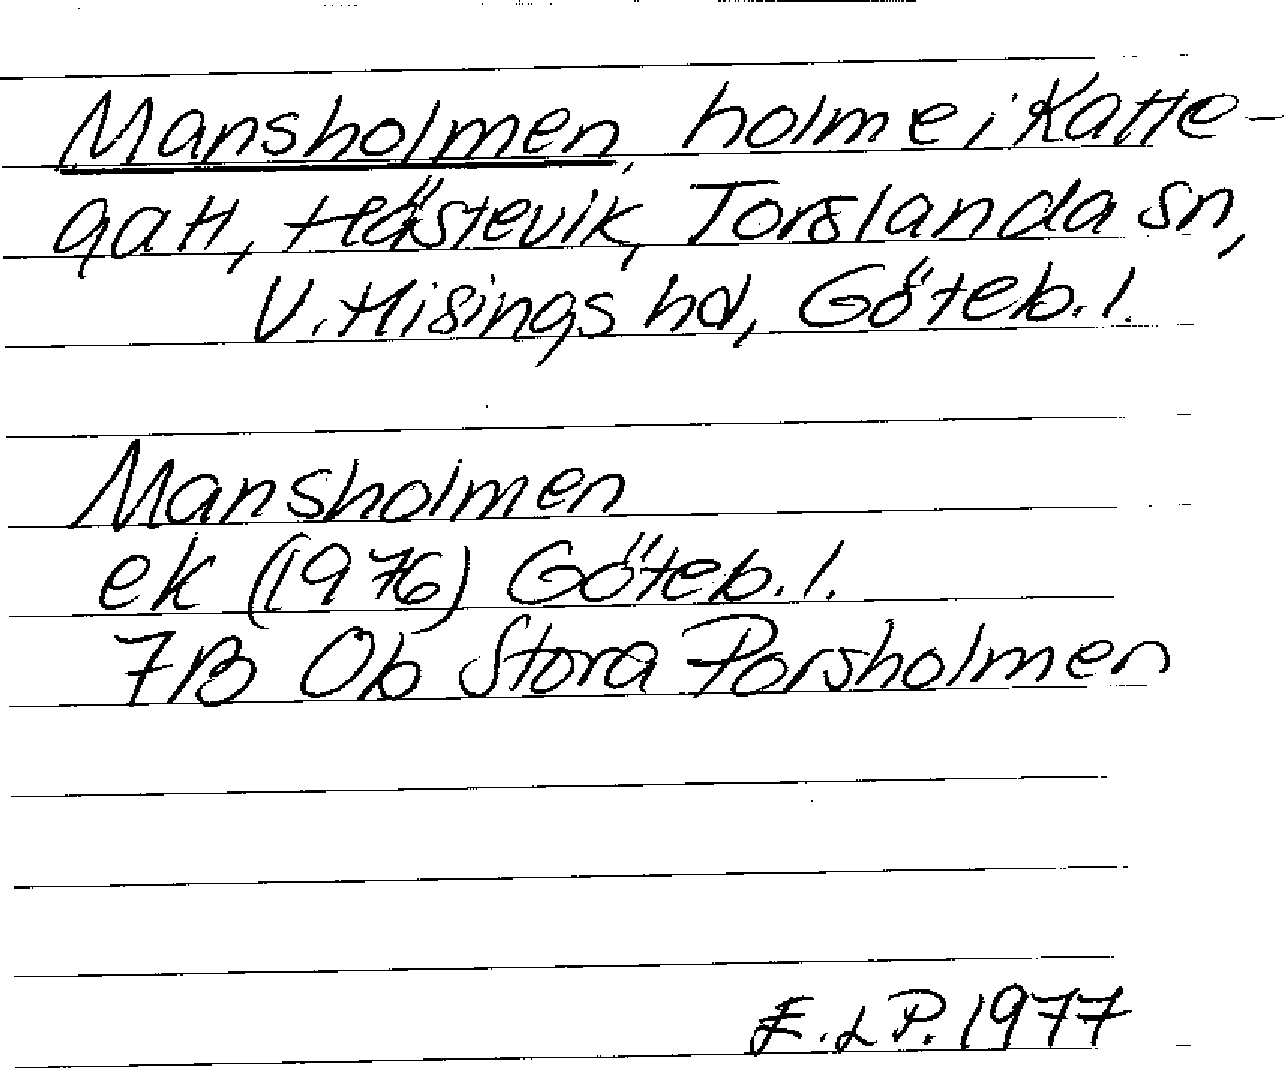 Mansholmen, holme i Katte-
gatt, Hästevik, Torslanda sn,
V. Hisings hd, Göteb. l.
Mansholmen
ek (1976) Göteb. l.
7B 0b Stora Porsholmen
E. L P. 1977